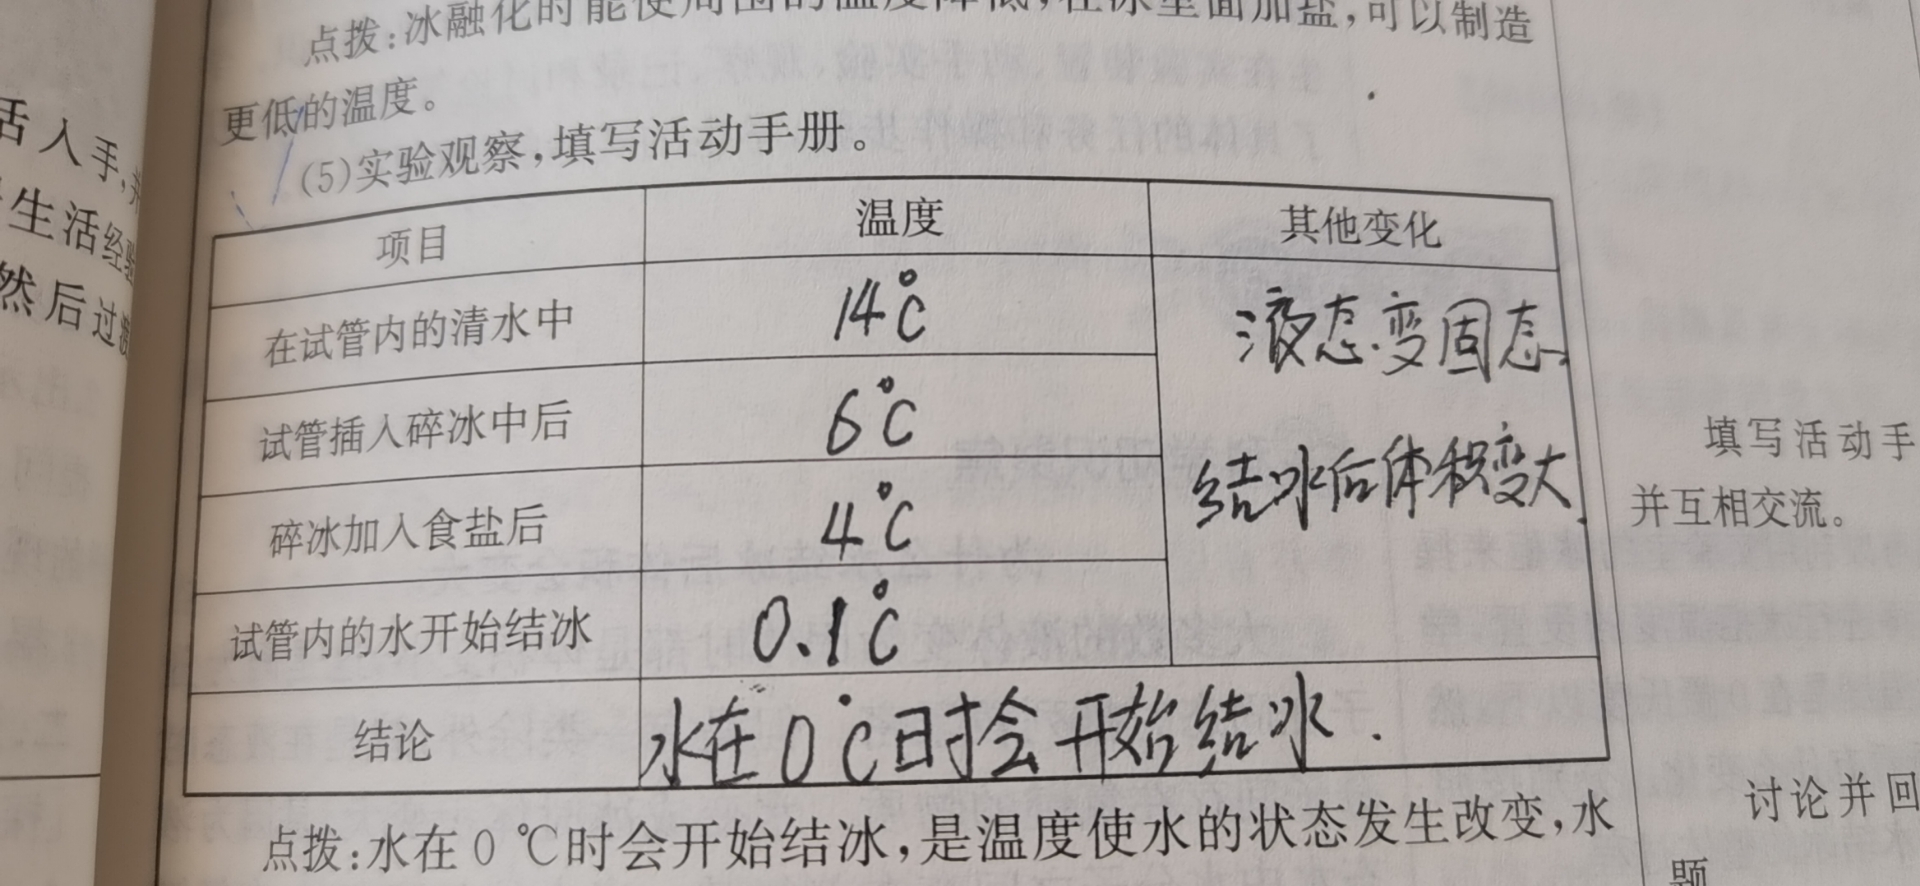 点拨:冰融化时能使周围的温度降低,在冰里面加盐,可以制造
更低的温度。
(5)实验观察,填写活动手册。
项目 温度 其他变化
在试管内的清水中 14℃ 液态变固态.
试管插入碎冰中后 6℃
结冰后体积变大.
碎冰加入食盐后 4℃
试管内的水开始结冰 0.1℃
结论 水在0℃时会开始结冰.
点拨:水在0 ℃时会开始结冰,是温度使水的状态发生改变,水
活入手,
生活经验
然后过
填写活动手
并互相交流。
讨论并回
题